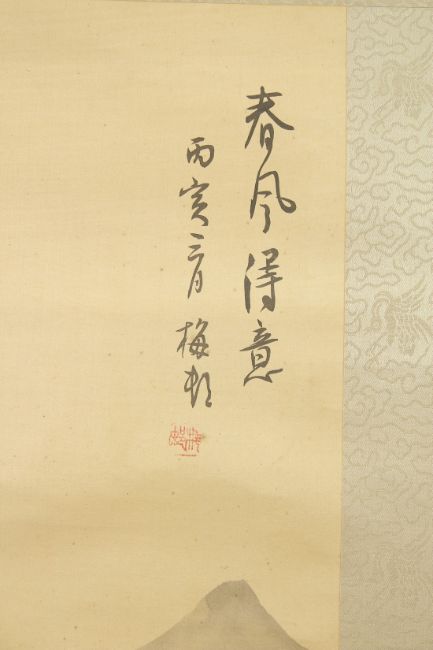 春风得意
丙寅二月 梅邨